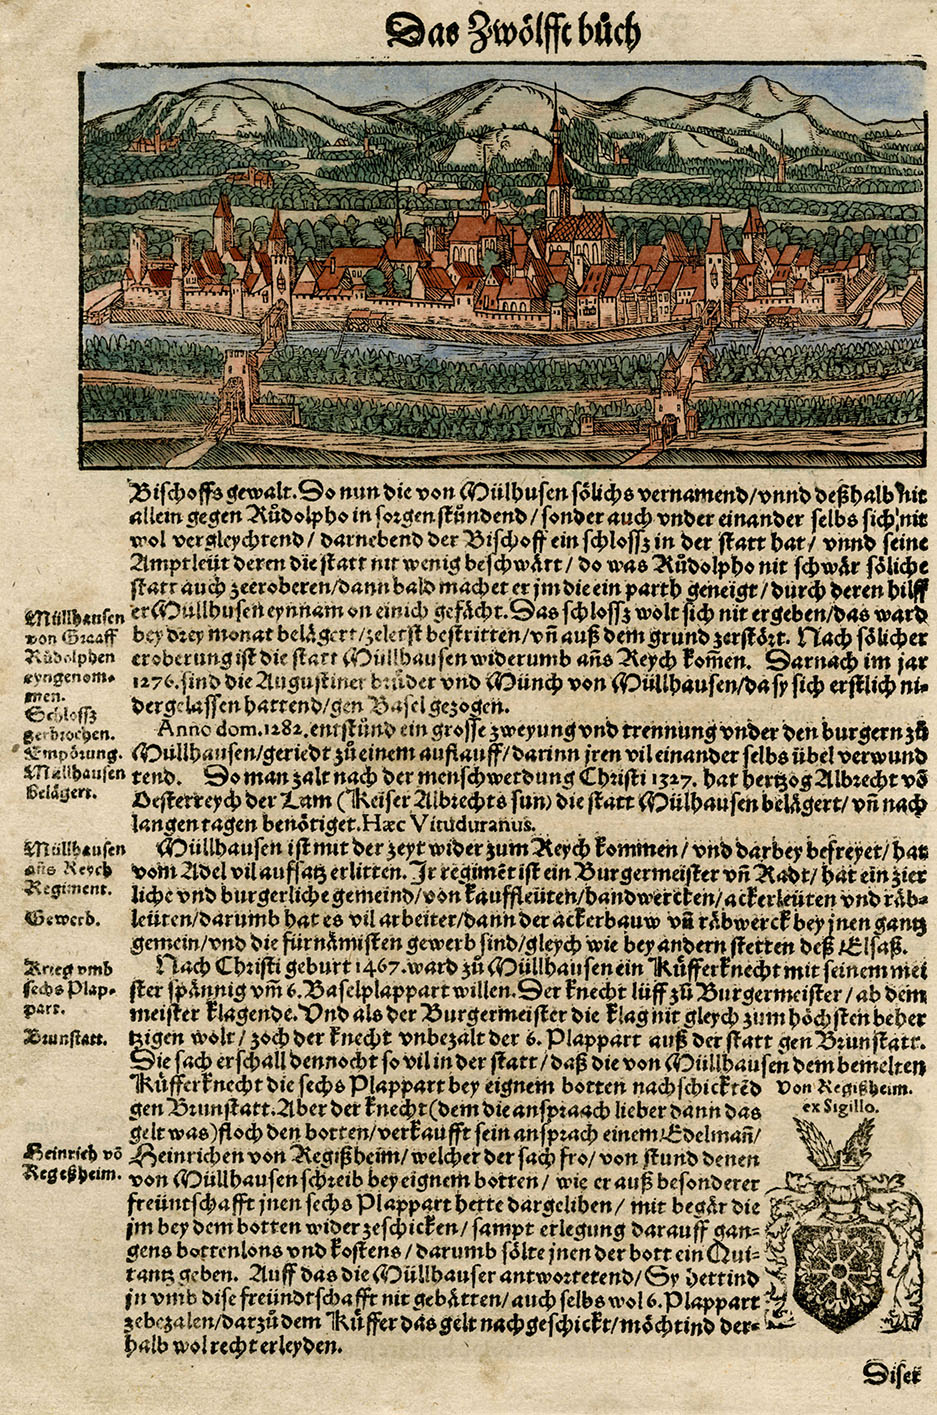 Das Zwölfft bůch
Bischoffs gewalt. Do nun die von Mülhusen sölichs vernamend/ vnnd deßhalb nit
allein gegen Růdolpho in sorgen stůndend/ sonder auch vnder einander selbs sich nit
wol vergleychtend/ darnebend der Bischoff ein schlossz in der statt hat/ vnnd seine
Amptleüt deren die statt nit wenig beschwärt/ do was Růdolpho nit schwär söliche
statt auch zeeroberen/ dann bald machet er jm die ein parth geneigt/ durch deren hilff
er Müllhusen eynnam on einich gefächt. Das schlossz wolt sich nit ergeben/ das ward
bey drey monat belägert/ zeletst bestritten/ vñ auß dem grund zerstört. Nach sölicher
eroberung ist die statt Müllhausen widerumb ans Reych kom̃en. Darnach im jar
1276. sind die Augustiner brüder vnd Münch von Müllhausen/ da sy sich erstlich ni-
dergelassen hattend/ gen Basel gezogen.
Müllhausen
von Graaff
Růdolphen
eyngenom-
men.
Schlossz
zerbrochen.
Anno dom. 1282. entstůnd ein grosse zweyung vnd trennung vnder den burgern zů
Müllhausen/ geriedt zů einem aufflauff/ darinn jren vil einander selbs übel verwund
tend. Do man zalt nach der menschwerdung Christi 1327. hat hertzog Albrecht võ
Oesterreych der Lam (Keiser Albrechts sun) die statt Mülhausen belägert/ vñ nach
langen tagen benötiget. Hæc Vituduranus.
Empörung.
Müllhausen
belägert.
Müllhausen ist mit der zeyt wider zum Reych kommen/ vnd darbey befreyet/ hat
vom Adel vil auffsatz erlitten. Jr regimẽt ist ein Burgermeister vñ Radt/ hat ein zier
liche vnd burgerliche gemeind/ von kauffleüten/ handwercken/ ackerleüten vnd räb-
leüten/ darumb hat es vil arbeiter/ dann der ackerbauw vñ räbwerck bey jnen gantz
gemein/ vnd die fürnämisten gewerb sind/ gleych wie bey andern stetten deß Elsaß.
Müllhausen
ans Reych
Regiment.
Gewerb.
Nach Christi geburt 1467. ward zů Müllhausen ein Küfferknecht mit seinem mei
ster spännig vm̃ 6. Baselplappart willen. Der knecht lüff zů Burgermeister/ ab dem
meister klagende. Vnd als der Burgermeister die klag nit gleych zum höchsten beher
tzigen wolt/ zoch der knecht vnbezalt der 6. Plappart auß der statt gen Brunstatt.
Die sach erschall dennocht so vil in der statt/ daß die von Müllhausen dem bemelten
Küfferknecht die sechs Plappart bey eignem botten nachschicktẽd
gen Brunstatt. Aber der knecht (dem die anspraach lieber dann das
gelt was) floch den botten/ verkaufft sein ansprach einem Edelmañ/
Heinrichen von Regißheim/ welcher der sach fro/ von stund denen
von Müllhausen schreib bey eignem botten/ wie er auß besonderer
freüntschafft jnen sechs Plappart hette dargelihen/ mit begär die
jm bey dem botten wider zeschicken/ sampt erlegung darauff gan-
gens bottenlons vnd kostens/ darumb sölte jnen der bott ein Qui-
tantz geben. Auff das die Müllhauser antwortetend/ Sy hettind
jn vmb dise freündtschafft nit gebätten/ auch selbs wol 6. Plappart
zebezalen/ darzů dem Küffer das gelt nachgeschickt/ möchtind der-
halb wol recht erleyden.
Krieg vmb
sechs Plap-
part.
Brunstatt.
Heinrich võ
Regeßheim.
Von Regißheim.
ex Sigillo.
Diser